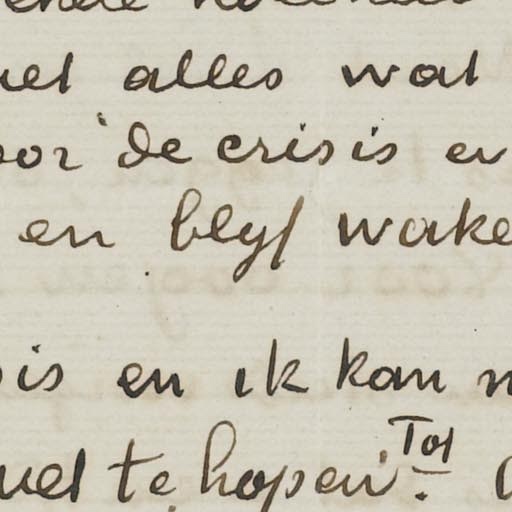 alles wat
de crisis en
en blyf wake
is en ik kan
te hopen. Tot